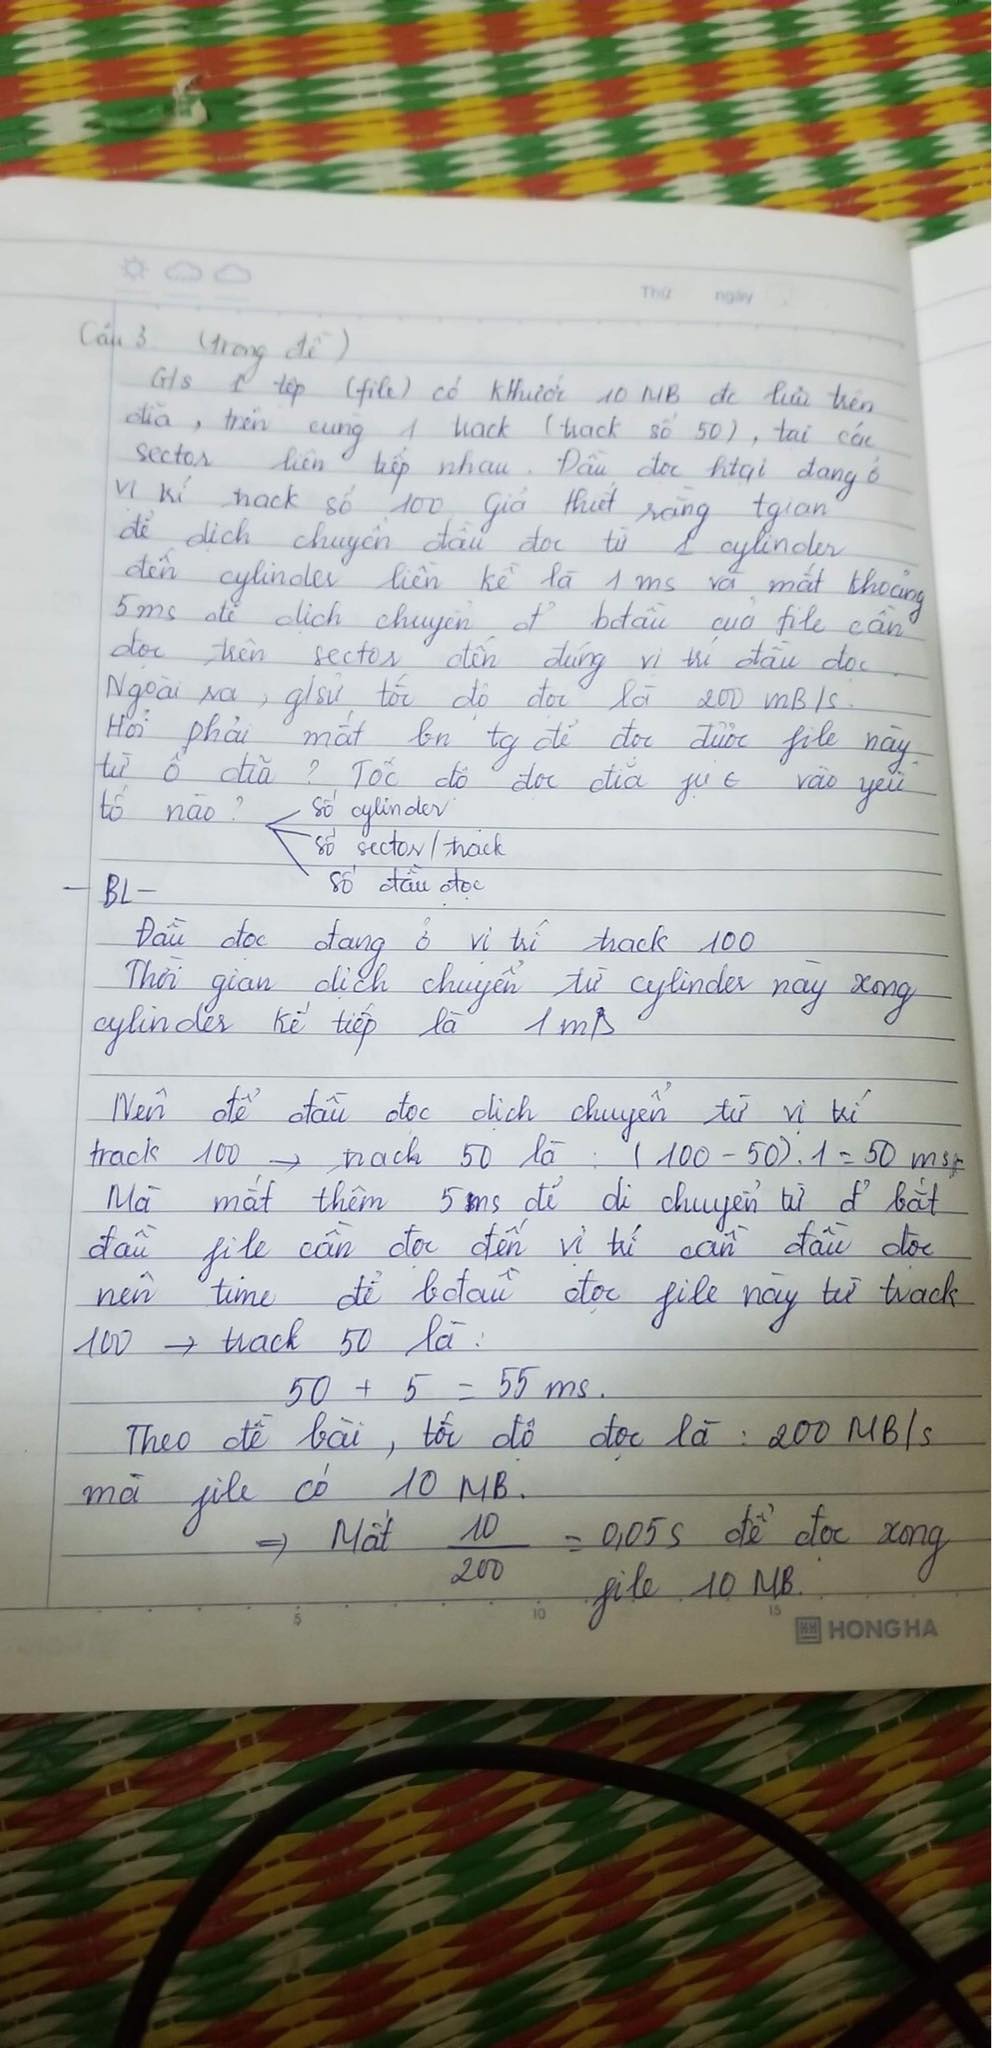 Thứ ngày
Câu 3 (trong đề)
G/s 1 tệp (file) có khthước 10 MB đc lưu trên
đĩa, trên cùng 1 track (track số 50), tại các
sector liên tiếp nhau. Đầu đọc htại đang ở
vị trí track số 100 Giả thiết rằng tgian
để dịch chuyển đầu đọc từ 1 cylinder
đến cylinder liền kề là 1 ms và mất khoảng
5ms để dịch chuyển đ' bđầu của file cần
đọc trên sector đến đúng vị trí đầu đọc
Ngoài ra, g/sử tốc độ đọc là 200 mB/s.
Hỏi phải mất bn tg để đọc được file này
từ ổ đĩa? Tốc độ đọc đĩa fụ ∈ vào yếu
tố nào? số cylinder
số sector/track
số đầu đọc
- BL -
Đầu đọc đang ở vị trí track 100
Thời gian dịch chuyển từ cylinder này xong
cylinder kế tiếp là 1 ms
Nên để đầu đọc dịch chuyển từ vị trí
track 100 → track 50 là : (100 - 50).1 = 50 ms.
Mà mất thêm 5ms để di chuyển từ đ' bắt
đầu file cần đọc đến vị trí cần đầu đọc
nên time để bđầu đọc file này từ track
100 → track 50 là :
50 + 5 = 55 ms.
Theo đề bài, tốc độ đọc là : 200 MB/s
mà file có 10 MB.
=> Mất 10/200 = 0,05s để đọc xong
file 10 MB.
5 10 15
HONG HA